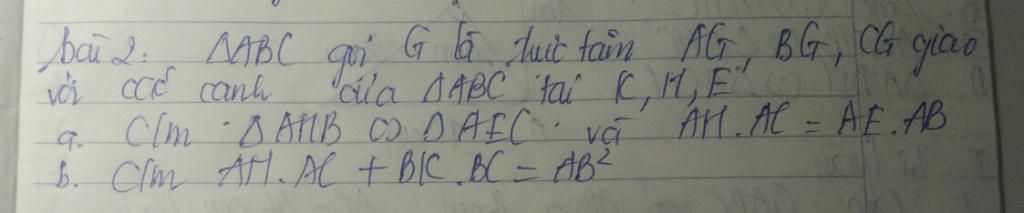 bài 2: ΔABC gọi G là trực tâm AG, BG, CG giao
với các cạnh của ΔABC tại K, H, E
a. C/m ΔAHB ∽ ΔAEC và AH.AC = AE.AB
b. C/m AH.AC + BK.BC = AB²